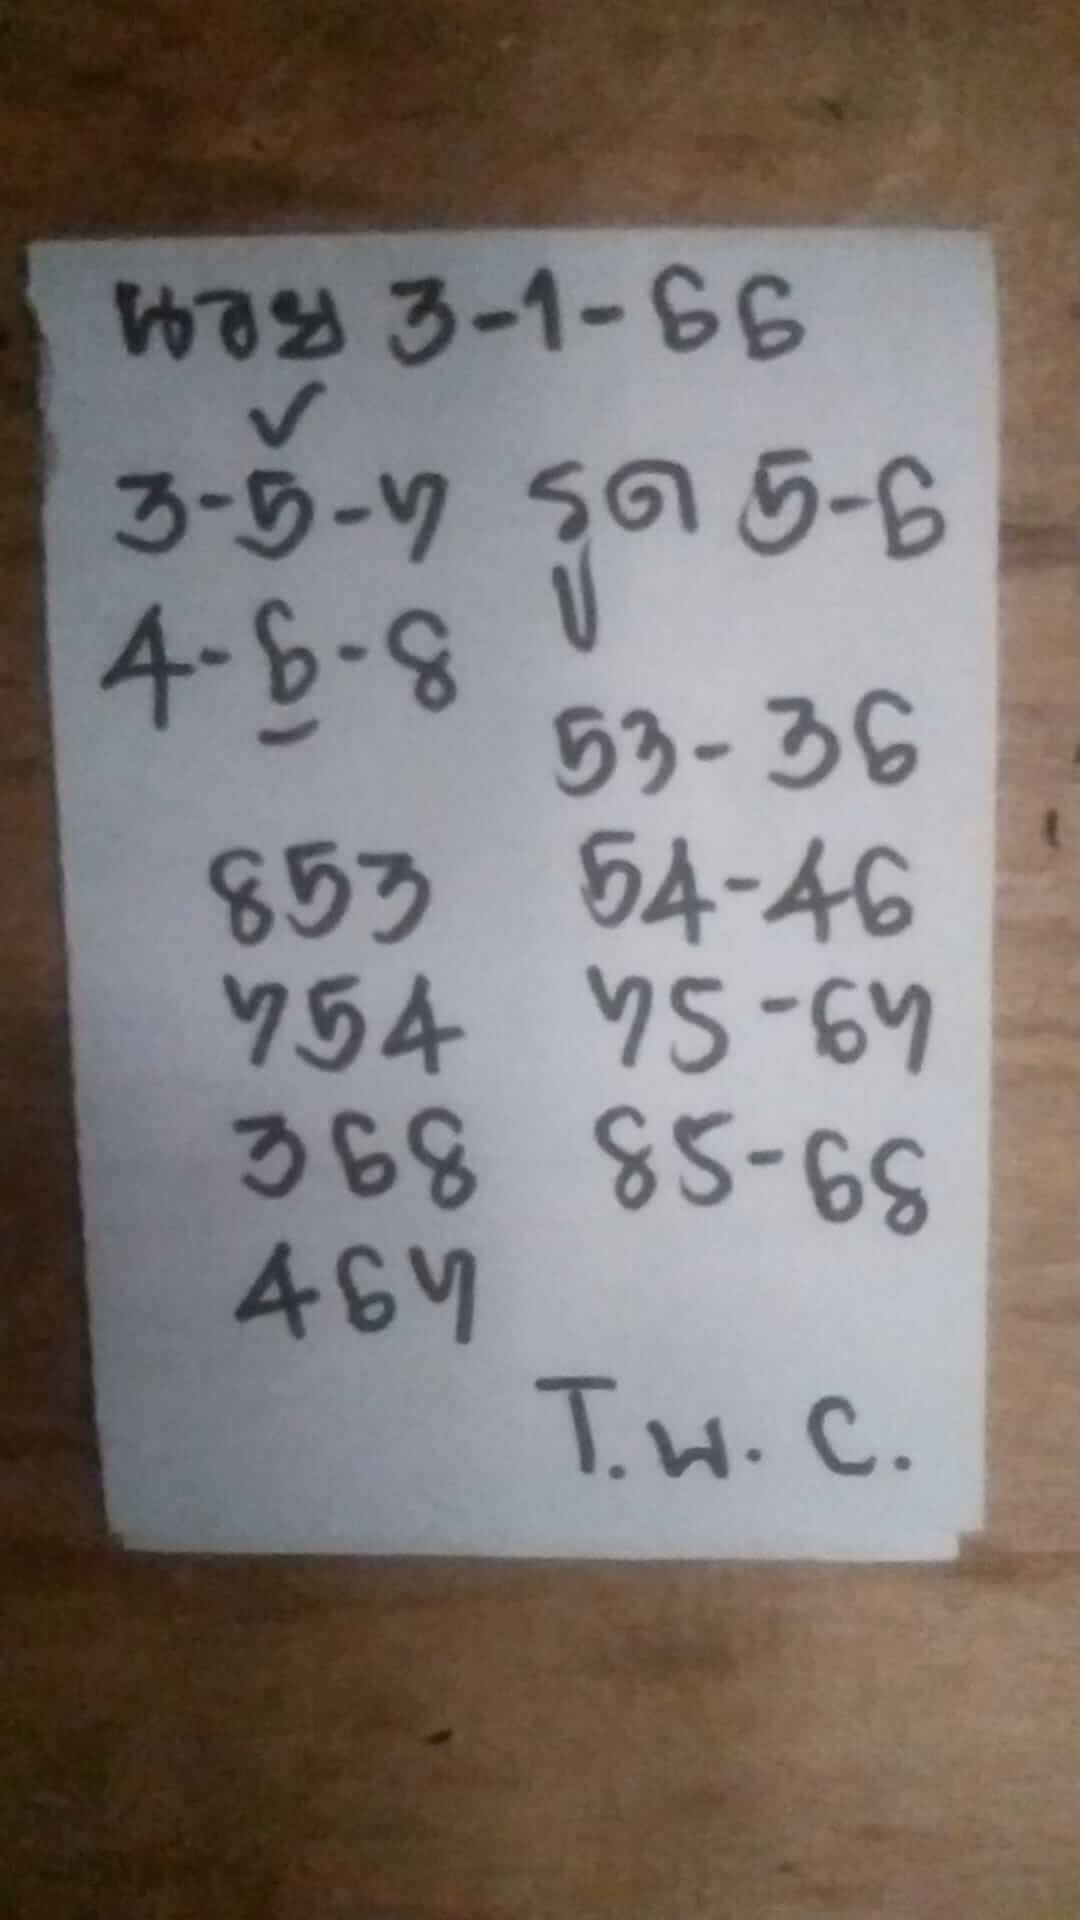 นอย 3-1-66
✓
3-5-7 รูด 5-6
4-6-8
53-36
853 54-46
754 75-67
368 85-68
467
T.W.C.